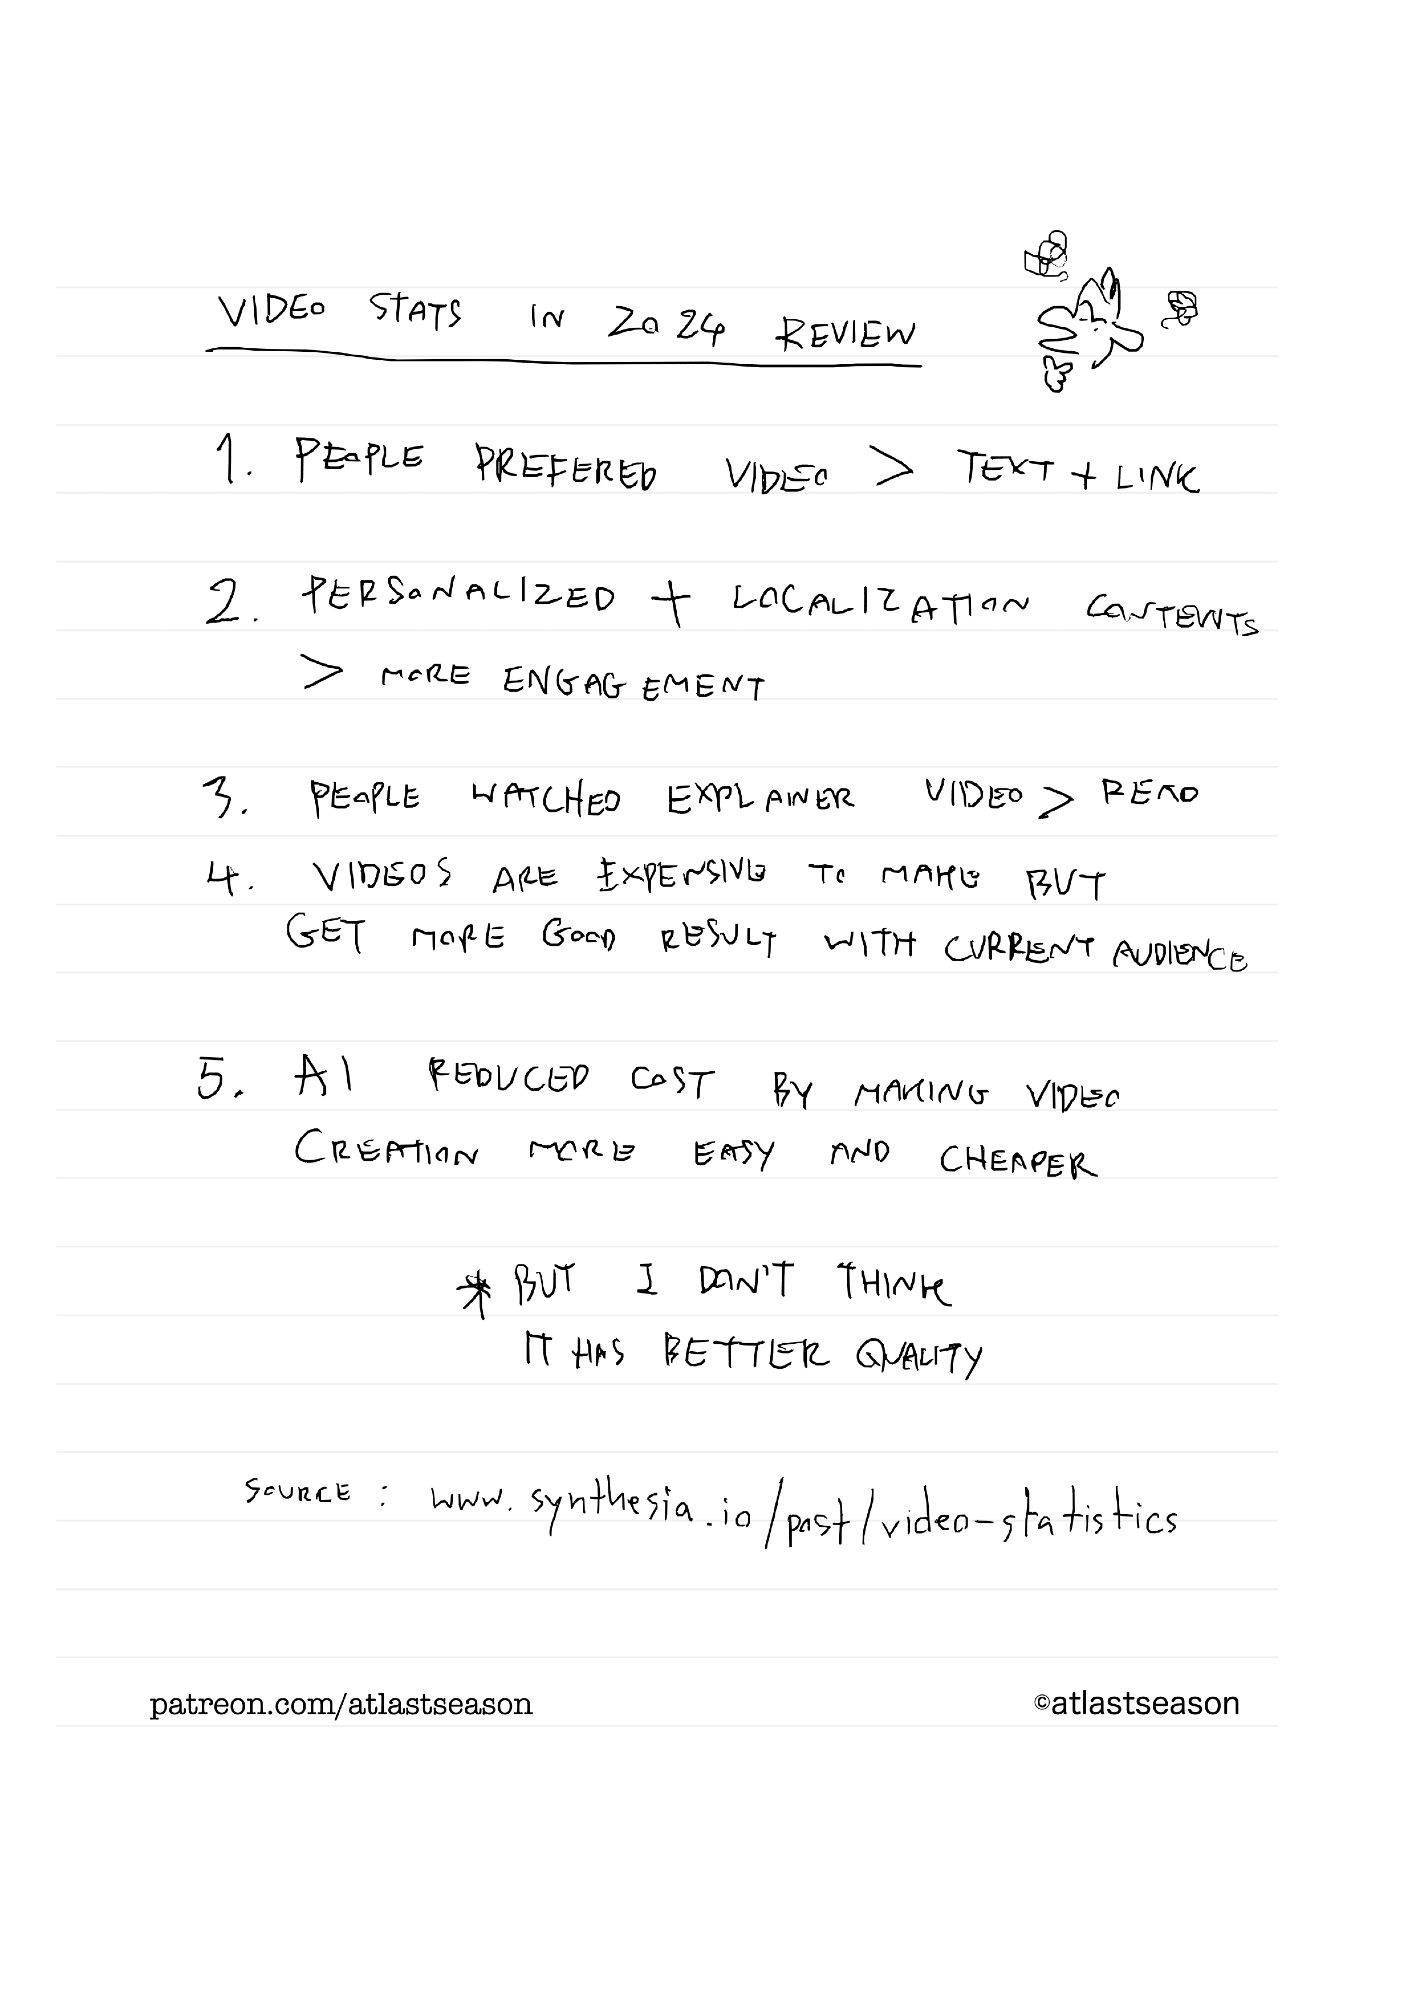 VIDEO STATS IN 2024 REVIEW
1. PEOPLE PREFERED VIDEO > TEXT + LINK
2. PERSONALIZED + LOCALIZATION CONTENTS
> MORE ENGAGEMENT
3. PEOPLE WATCHED EXPLAINER VIDEO > READ
4. VIDEOS ARE EXPENSIVE TO MAKE BUT
GET MORE GOOD RESULT WITH CURRENT AUDIENCE
5. AI REDUCED COST BY MAKING VIDEO
CREATION MORE EASY AND CHEAPER
* BUT I DON'T THINK
IT HAS BETTER QUALITY
SOURCE : www.synthesia.io/post/video-statistics
patreon.com/atlastseason
©atlastseason